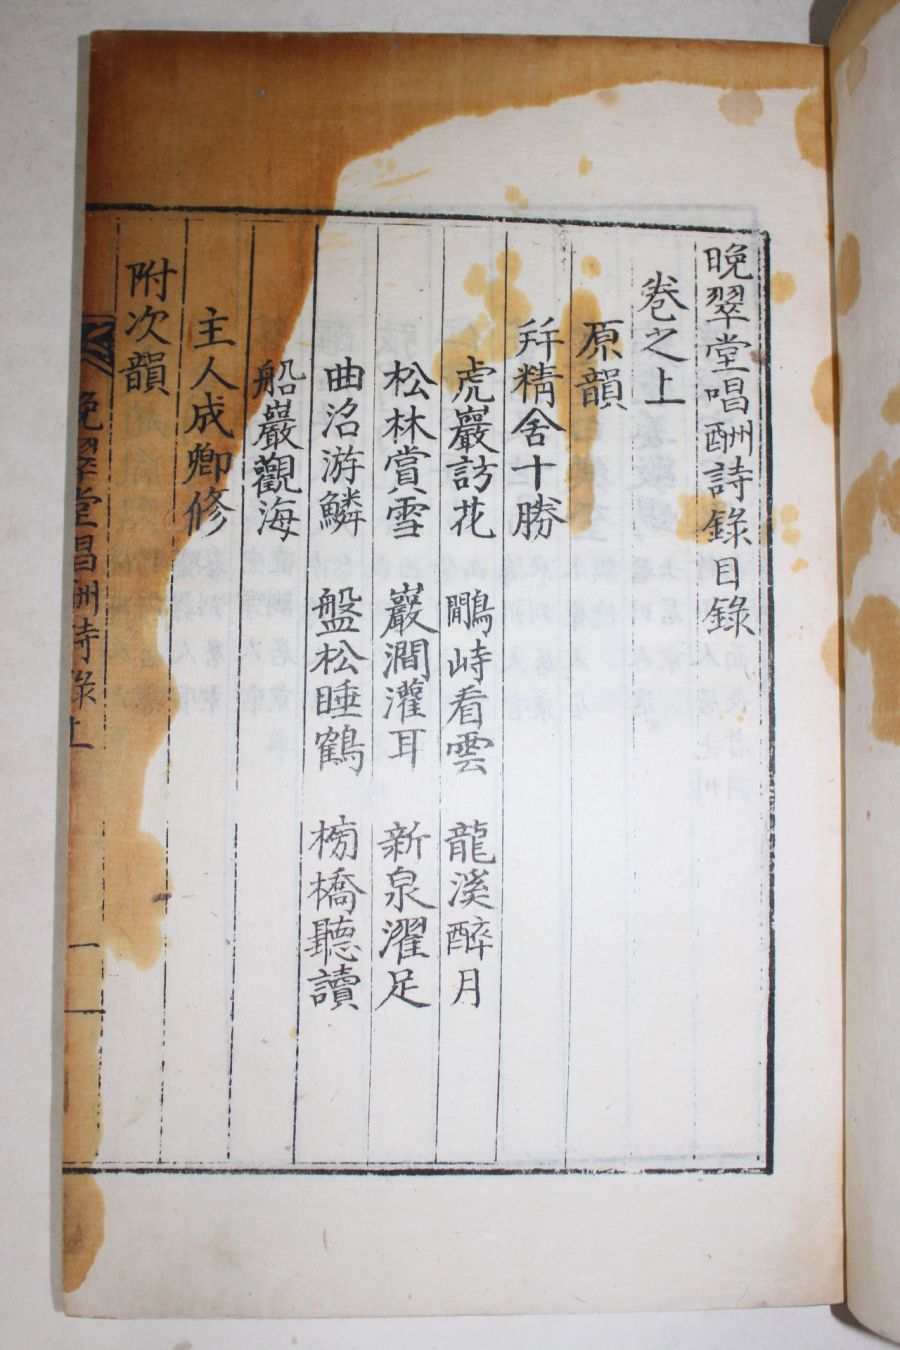 晩翠堂唱酬詩錄目錄
卷之上
原韻
幷精舍十勝
虎巖訪花 鵬峙看雲 龍溪醉月
松林賞雪 巖澗灌耳 新泉濯足
曲沼游鱗 盤松睡鶴 橋聽讀
船巖觀海
主人成卿修
附次韻
晩翠堂唱酬詩錄上 一